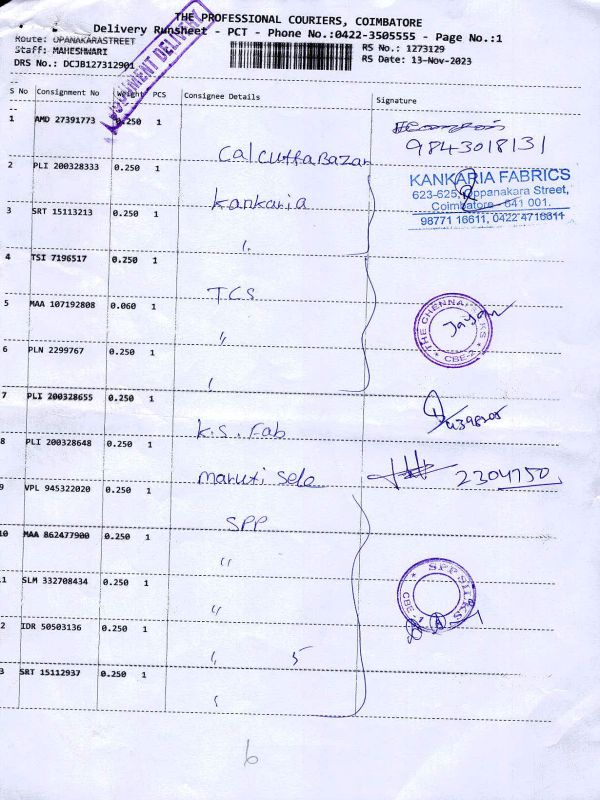 THE PROFESSIONAL COURIERS, COIMBATORE
Delivery Runsheet - PCT - Phone No.:0422-3505555 - Page No.:1
Route: OPANAKARASTREET
RS No.: 1273129
Staff: MAHESHWARI
RS Date: 13-Nov-2023
DRS No.: DCJB127312901
DELIVERY
S No Consignment No Weight PCS Consignee Details Signature
1 AMD 27391773 0.250 1 Calcutta Bazar 9843018131
2 PLI 200328333 0.250 1 Kankaria
KANKARIA FABRICS
623-625, Oppanakara Street,
Coimbatore - 641 001.
98771 16611, 0422 4716611
3 SRT 15113213 0.250 1 "
4 TSI 7196517 0.250 1 TCS
5 MAA 107192808 0.060 1 "
THE CHENNAI SILKS
CBE-2
6 PLN 2299767 0.250 1
7 PLI 200328655 0.250 1 K.S. Fab
8 PLI 200328648 0.250 1 maruti Sele 2304750
9 VPL 945322020 0.250 1 SPP
10 MAA 862477900 0.250 1 "
1 SLM 332708434 0.250 1 "
SPP SILKS
CBE-1
2 IDR 50503136 0.250 1 5
3 SRT 15112937 0.250 1
6